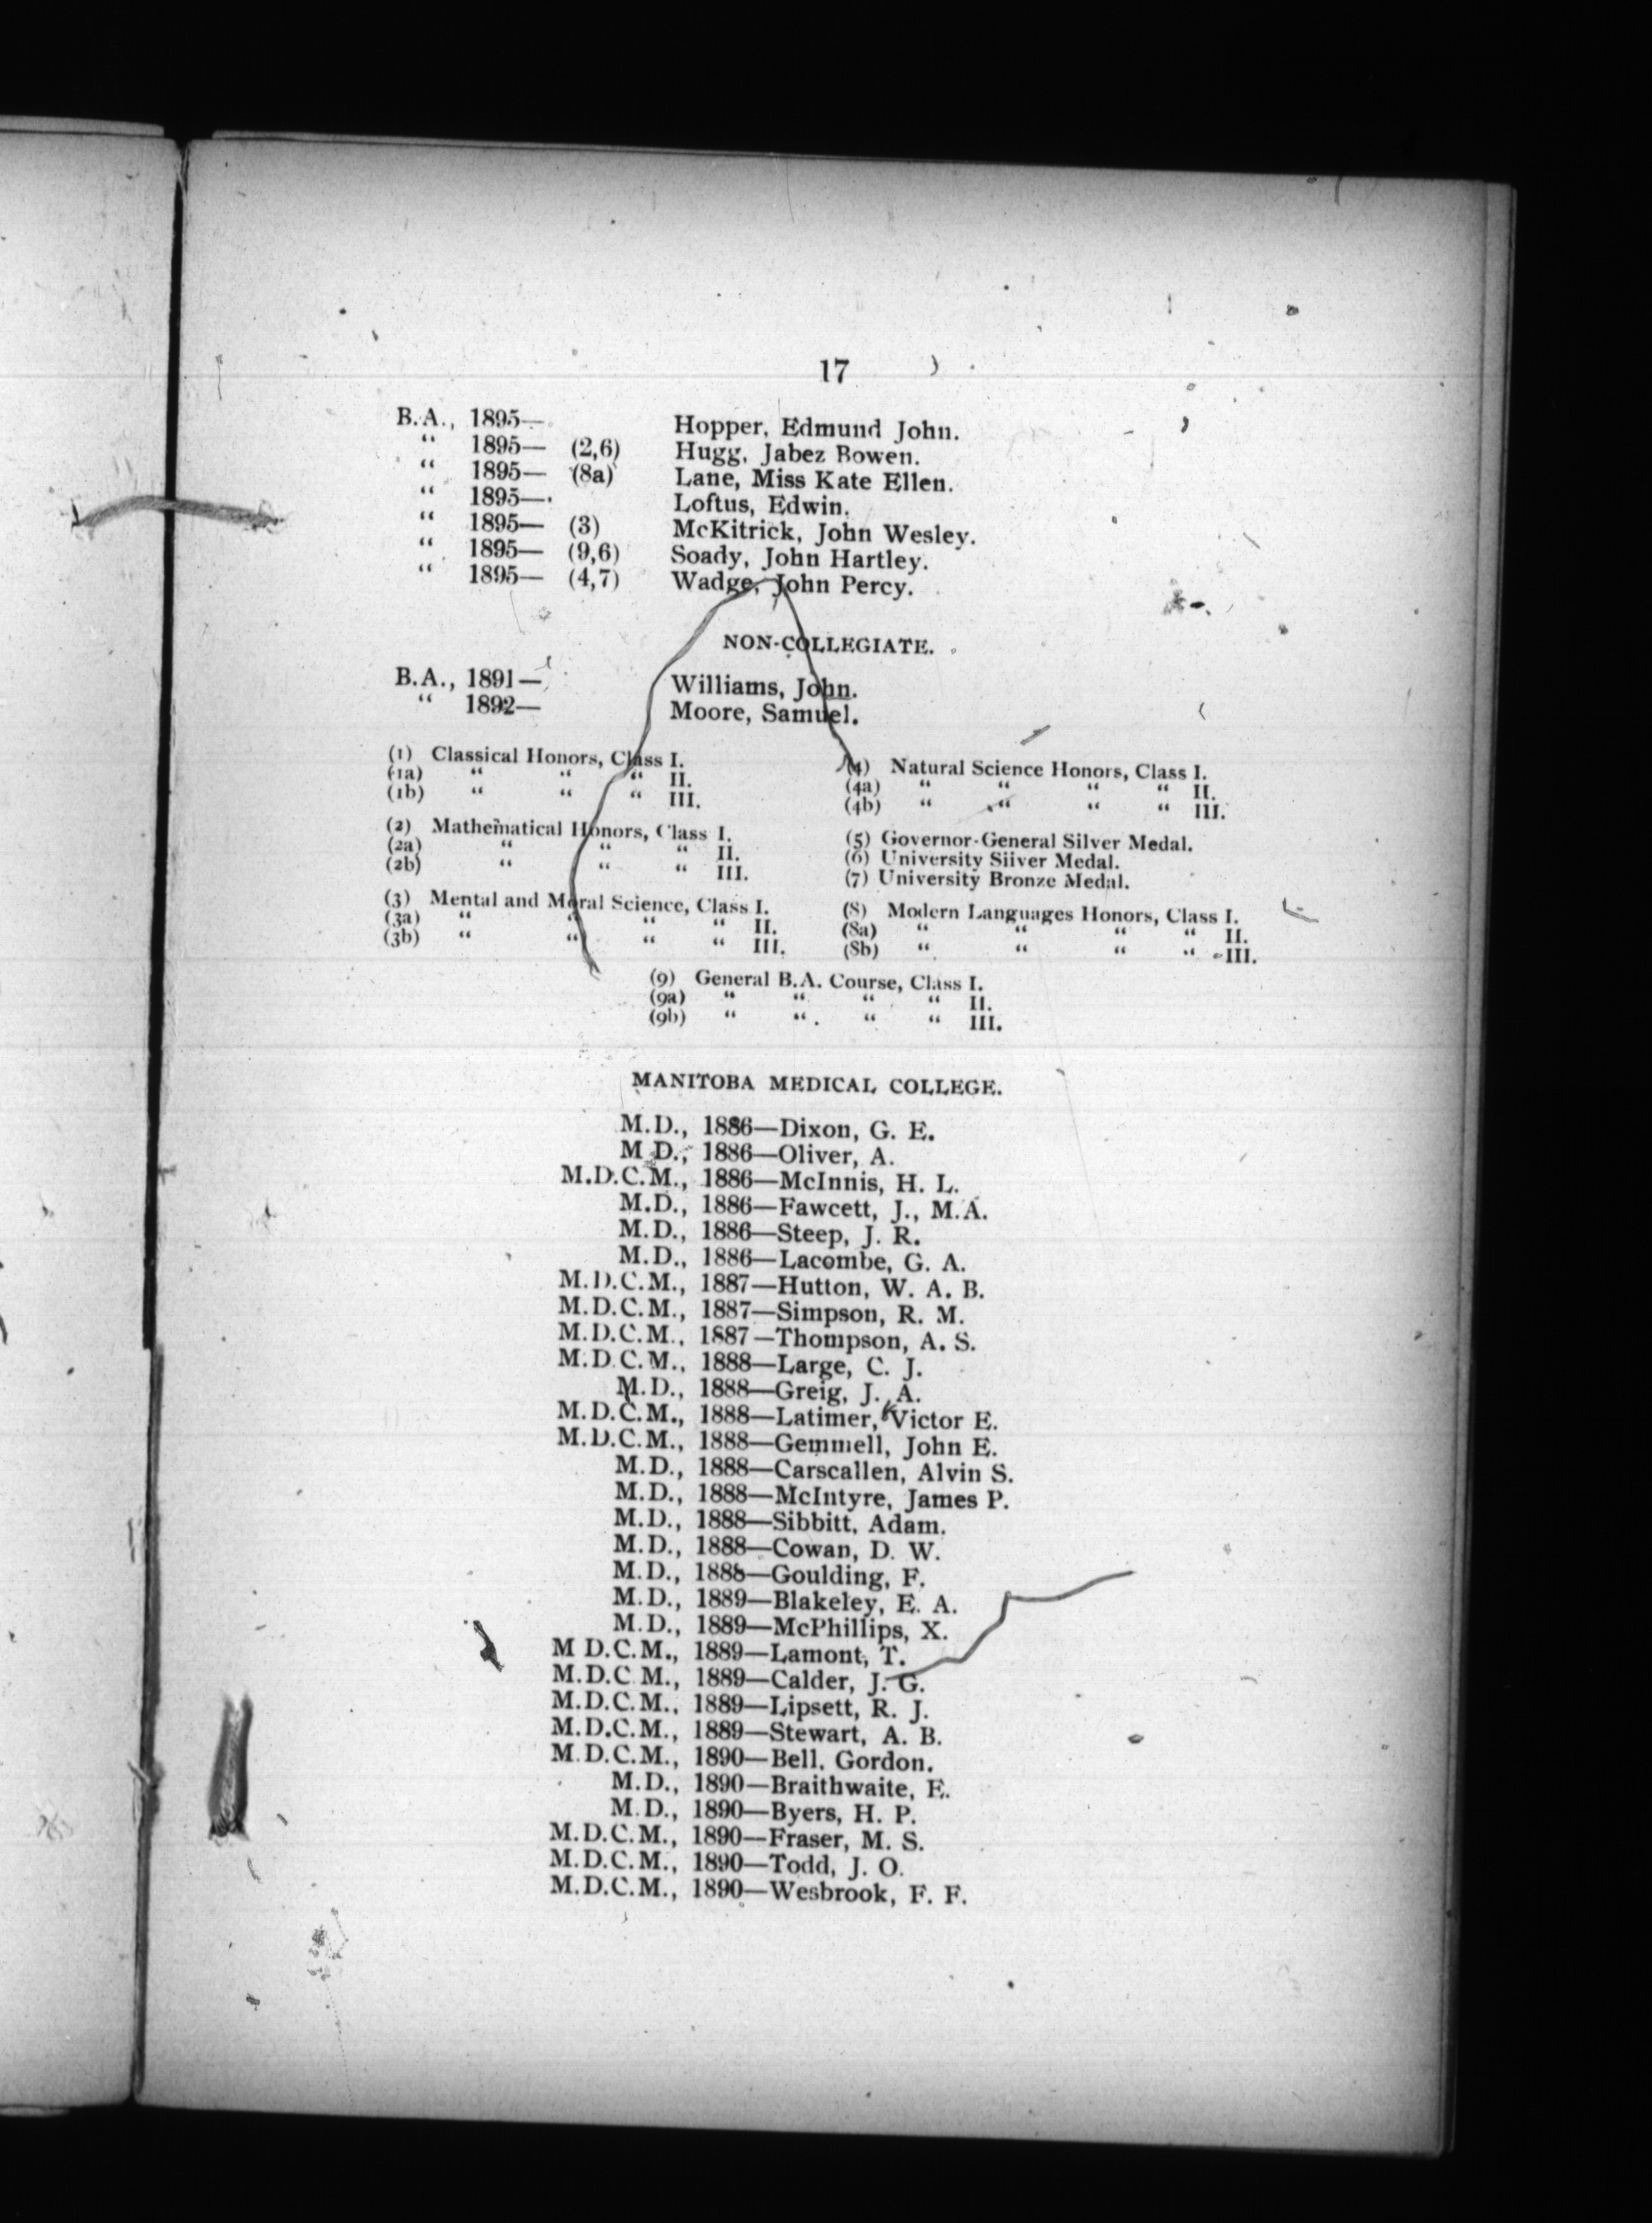 17
B.A., 1895— Hopper, Edmund John.
“ 1895— (2,6) Hugg, Jabez Bowen.
“ 1895— (8a) Lane, Miss Kate Ellen.
“ 1895— Loftus, Edwin.
“ 1895— (3) McKitrick, John Wesley.
“ 1895— (9,6) Soady, John Hartley.
“ 1895— (4,7) Wadge, John Percy.
NON-COLLEGIATE.
B.A., 1891— Williams, John.
“ 1892— Moore, Samuel.
(1) Classical Honors, Class I.
(1a) “ “ “ II.
(1b) “ “ “ III.
(2) Mathematical Honors, Class I.
(2a) “ “ “ II.
(2b) “ “ “ III.
(3) Mental and Moral Science, Class I.
(3a) “ “ “ “ II.
(3b) “ “ “ “ III.
(4) Natural Science Honors, Class I.
(4a) “ “ “ “ II.
(4b) “ “ “ “ III.
(5) Governor-General Silver Medal.
(6) University Silver Medal.
(7) University Bronze Medal.
(8) Modern Languages Honors, Class I.
(8a) “ “ “ “ II.
(8b) “ “ “ “ III.
(9) General B.A. Course, Class I.
(9a) “ “ “ “ II.
(9b) “ “ “ “ III.
MANITOBA MEDICAL COLLEGE.
M.D., 1886—Dixon, G. E.
M D., 1886—Oliver, A.
M.D.C.M., 1886—McInnis, H. L.
M.D., 1886—Fawcett, J., M.A.
M.D., 1886—Steep, J. R.
M.D., 1886—Lacombe, G. A.
M.D.C.M., 1887—Hutton, W. A. B.
M.D.C.M., 1887—Simpson, R. M.
M.D.C.M., 1887—Thompson, A. S.
M.D.C.M., 1888—Large, C. J.
M.D., 1888—Greig, J. A.
M.D.C.M., 1888—Latimer, Victor E.
M.D.C.M., 1888—Gemmell, John E.
M.D., 1888—Carscallen, Alvin S.
M.D., 1888—McIntyre, James P.
M.D., 1888—Sibbitt, Adam.
M.D., 1888—Cowan, D. W.
M.D., 1888—Goulding, F.
M.D., 1889—Blakeley, E. A.
M.D., 1889—McPhillips, X.
M D.C.M., 1889—Lamont, T.
M.D.C M., 1889—Calder, J. G.
M.D.C.M., 1889—Lipsett, R. J.
M.D.C.M., 1889—Stewart, A. B.
M.D.C.M., 1890—Bell, Gordon.
M.D., 1890—Braithwaite, E.
M.D., 1890—Byers, H. P.
M.D.C.M., 1890—Fraser, M. S.
M.D.C.M., 1890—Todd, J. O.
M.D.C.M., 1890—Wesbrook, F. F.